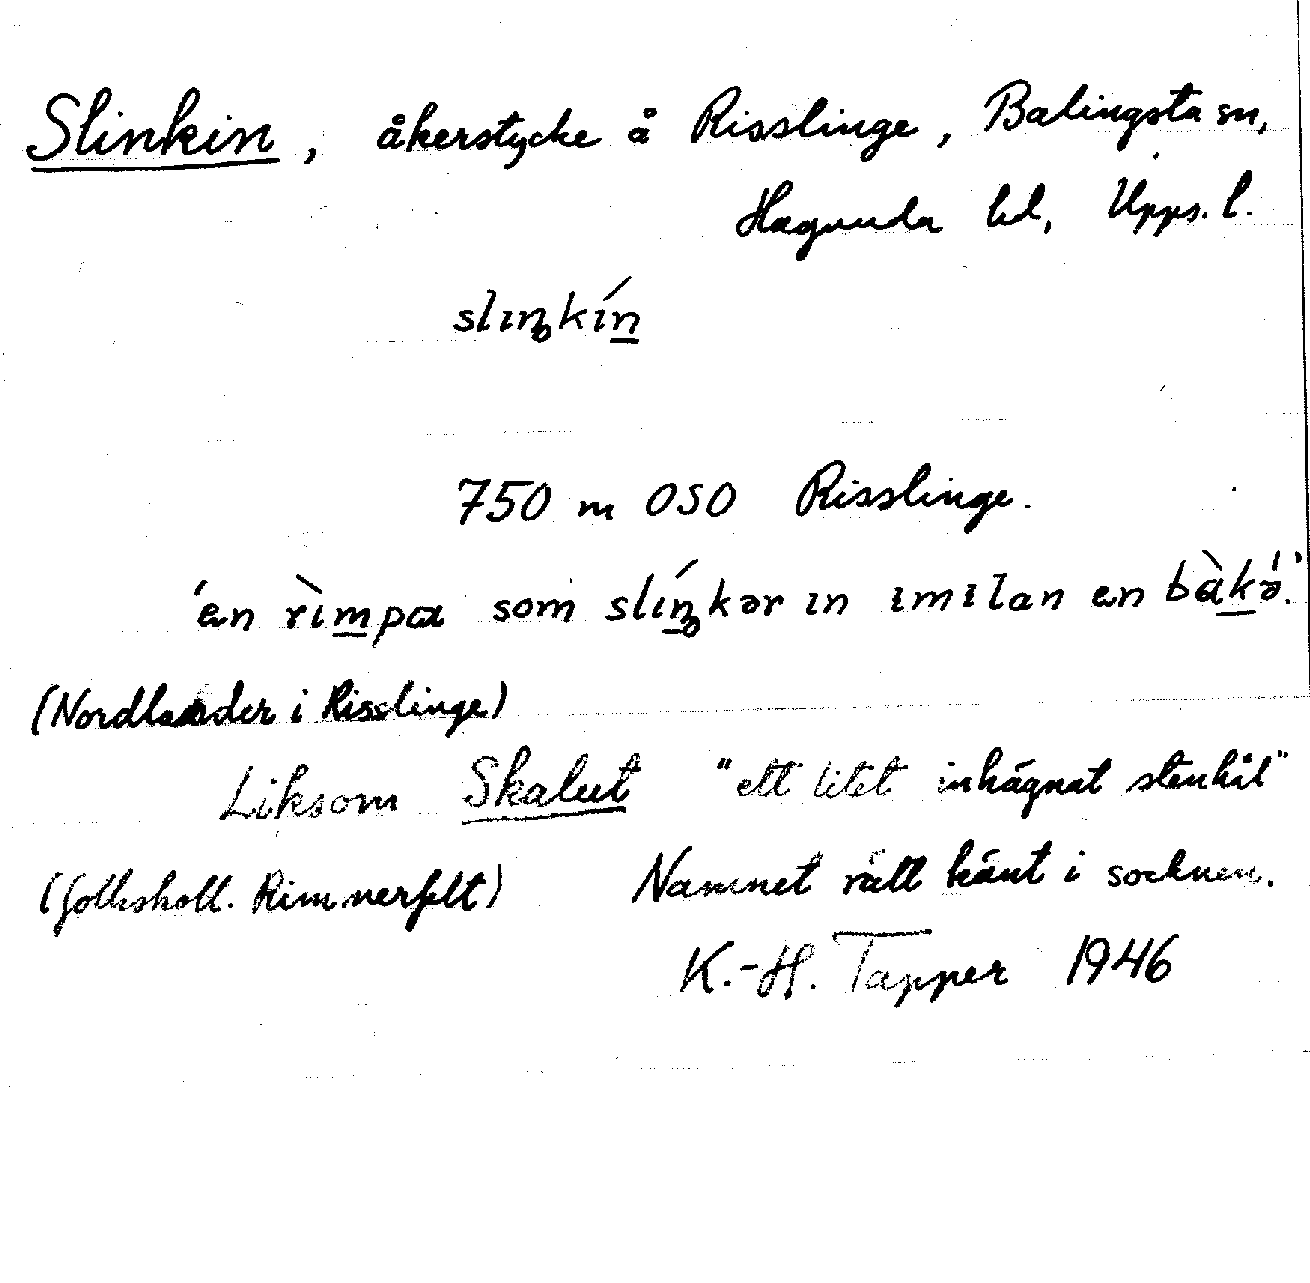 Slinkin, åkerstycke å Risslinge, Balingsta sn,
Hagunda hd, Upps. l.
slıŋkín
750 m OSO Risslinge.
"en rìmpa som slíŋkər ın ımılan en bàkə́."
(Nordlander i Risslinge)
Liksom Skalut "ett litet inhägnat stenhål"
(folkskoll. Rimnerfelt) Namnet rätt känt i socknen.
K.-H. Tapper 1946